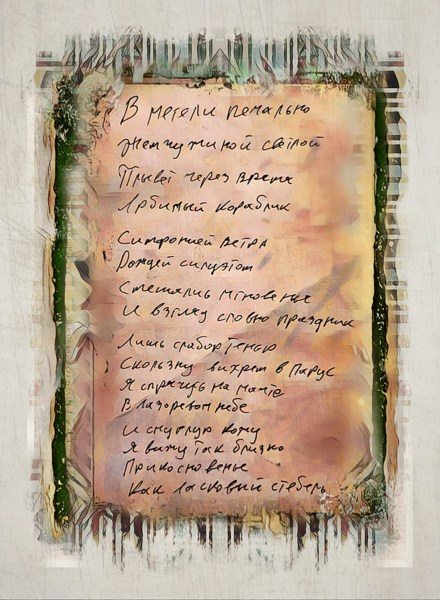 В метели печально
Жемчужиной светлой
Плывёт через время
Любимый кораблик
Симфонией ветра
Рождён силуэтом
Смешались мгновенье
И взгляд словно праздник
Лишь слабой тенью
Скольжу вихрем в парус
Я спрячусь на мачте
В лазоревом небе
И смуглую кожу
Я вижу так близко
Прикосновенье
Как ласковый стебель